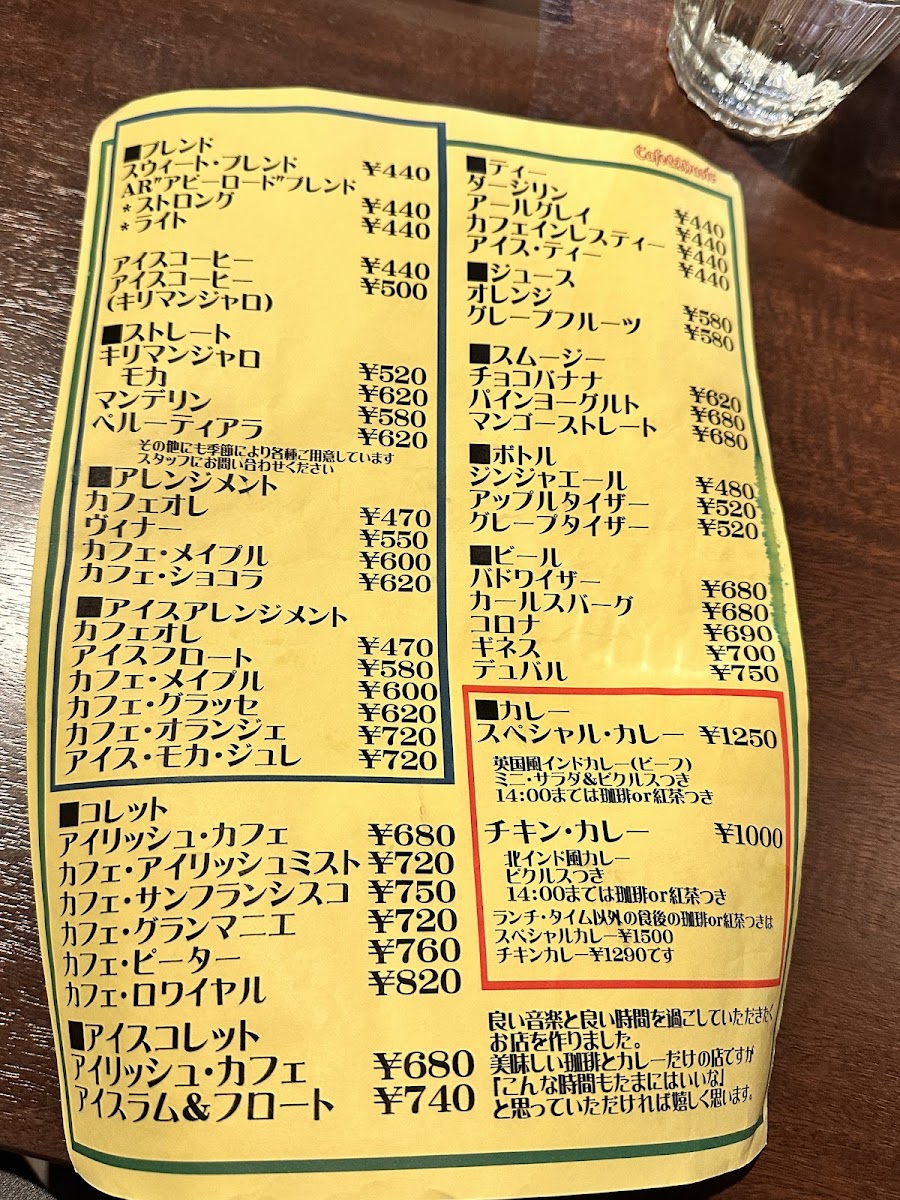 ■ブレンド
スウィート・ブレンド ¥440
AR"アビーロード"ブレンド
*ストロング ¥440
*ライト ¥440
アイスコーヒー ¥440
アイスコーヒー ¥500
(キリマンジャロ)
■ストレート
キリマンジャロ ¥520
モカ ¥620
マンデリン ¥580
ペルーティアラ ¥620
その他にも季節により各種ご用意しています
スタッフにお問い合わせください
■アレンジメント
カフェオレ ¥470
ヴィナー ¥550
カフェ・メイプル ¥600
カフェ・ショコラ ¥620
■アイスアレンジメント
カフェオレ ¥470
アイスフロート ¥580
カフェ・メイプル ¥600
カフェ・グラッセ ¥620
カフェ・オランジェ ¥720
アイス・モカ・ジュレ ¥720
■コレット
アイリッシュ・カフェ ¥680
カフェ・アイリッシュミスト ¥720
カフェ・サンフランシスコ ¥750
カフェ・グランマニエ ¥720
カフェ・ピーター ¥760
カフェ・ロワイヤル ¥820
■アイスコレット
アイリッシュ・カフェ ¥680
アイスラム&フロート ¥740
Cafe&Music
■ティー
ダージリン ¥440
アールグレイ ¥440
カフェインレスティー ¥440
アイス・ティー ¥440
■ジュース
オレンジ ¥580
グレープフルーツ ¥580
■スムージー
チョコバナナ ¥620
パインヨーグルト ¥680
マンゴーストレート ¥680
■ボトル
ジンジャエール ¥480
アップルタイザー ¥520
グレープタイザー ¥520
■ビール
バドワイザー ¥680
カールスバーグ ¥680
コロナ ¥690
ギネス ¥700
デュバル ¥750
■カレー
スペシャル・カレー ¥1250
英国風インドカレー(ビーフ)
ミニ・サラダ&ピクルスつき
14:00までは珈琲or紅茶つき
チキン・カレー ¥1000
北インド風カレー
ピクルスつき
14:00までは珈琲or紅茶つき
ランチ・タイム以外の食後の珈琲or紅茶つきは
スペシャルカレー¥1500
チキンカレー¥1290です
良い音楽と良い時間を過ごしていただきたく
お店を作りました。
美味しい珈琲とカレーだけの店ですが
「こんな時間もたまにはいいな」
と思っていただければ嬉しく思います。